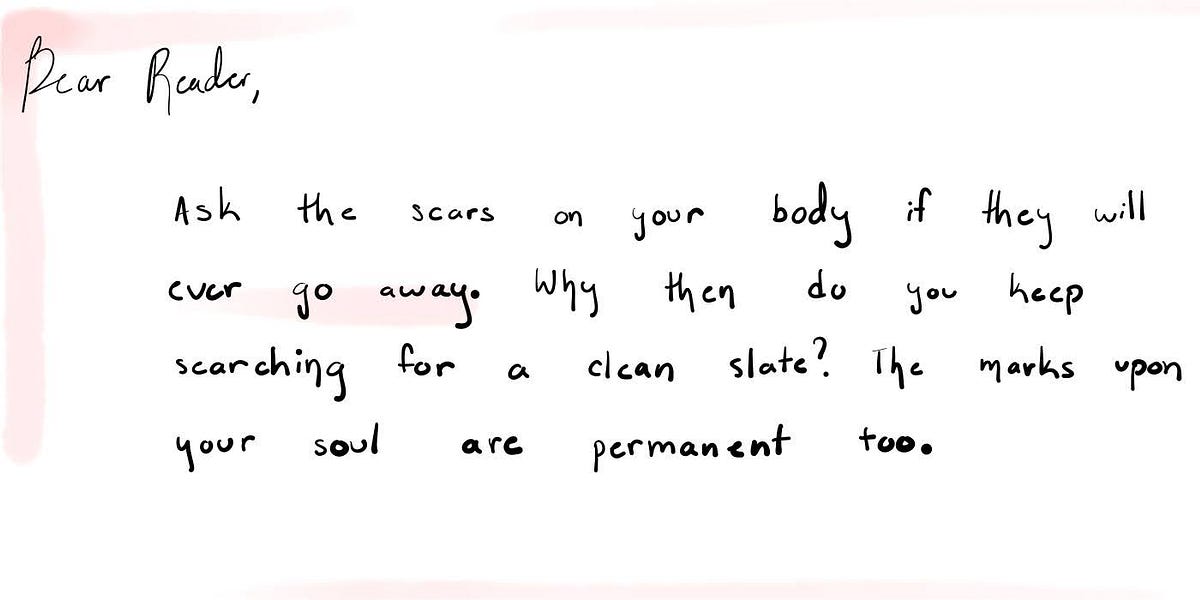 Dear Reader,
Ask the scars on your body if they will
ever go away. Why then do you keep
searching for a clean slate? The marks upon
your soul are permanent too.